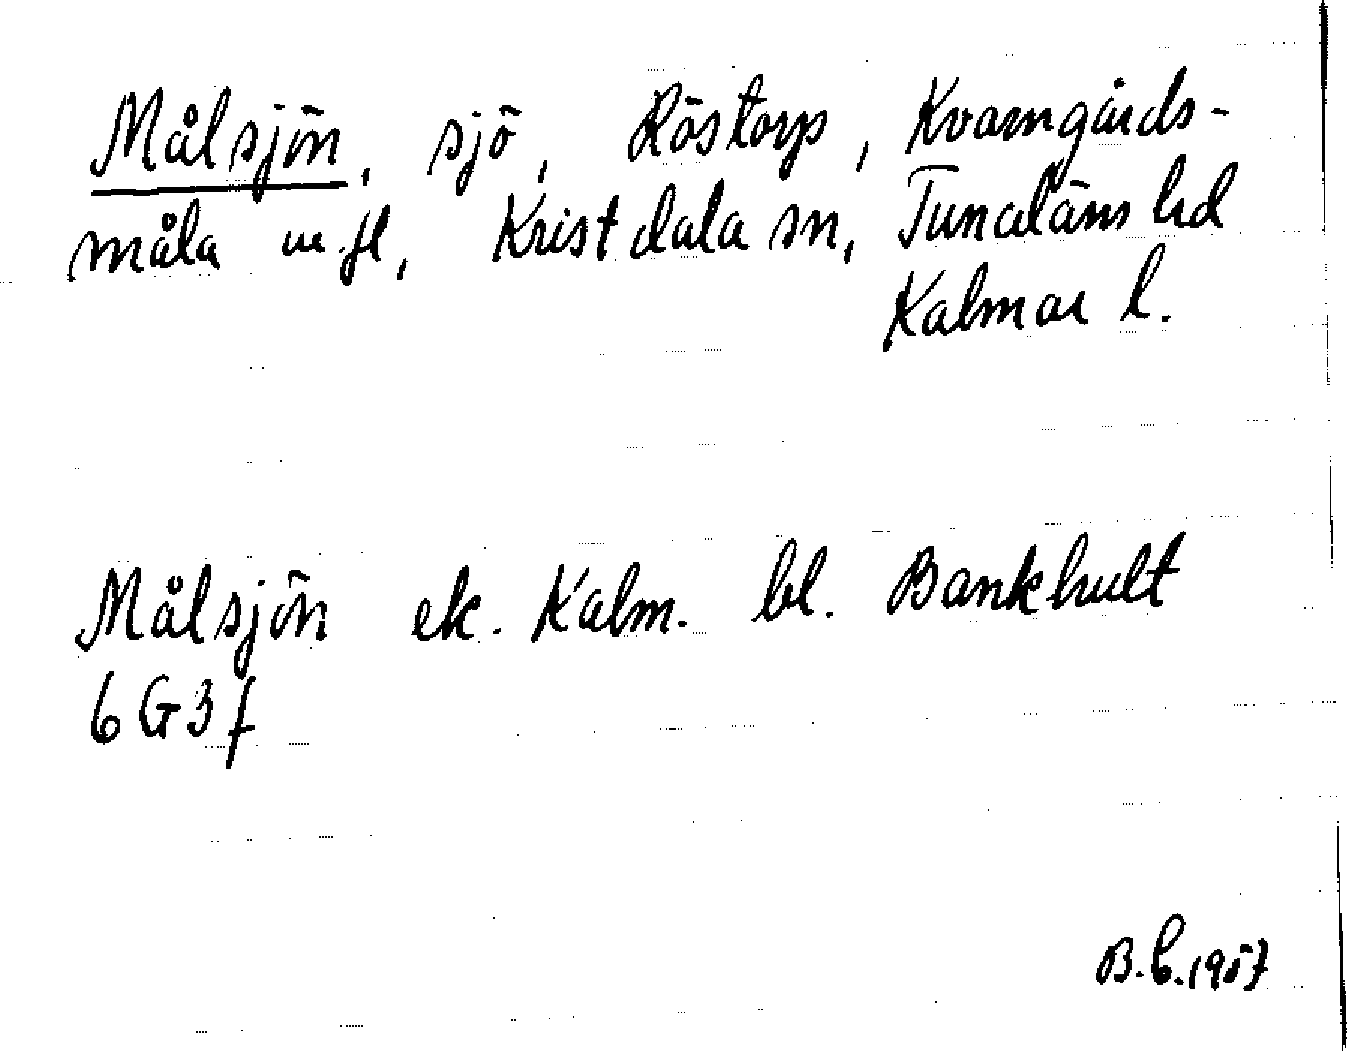 Målsjön, sjö, Röstorp, Kvarngårds-
måla m.fl, Kristdala sn, Tunaläns hd
Kalmar l.
Målsjön ek. Kalm. bl. Bankhult
6G3f
B.C. 1957